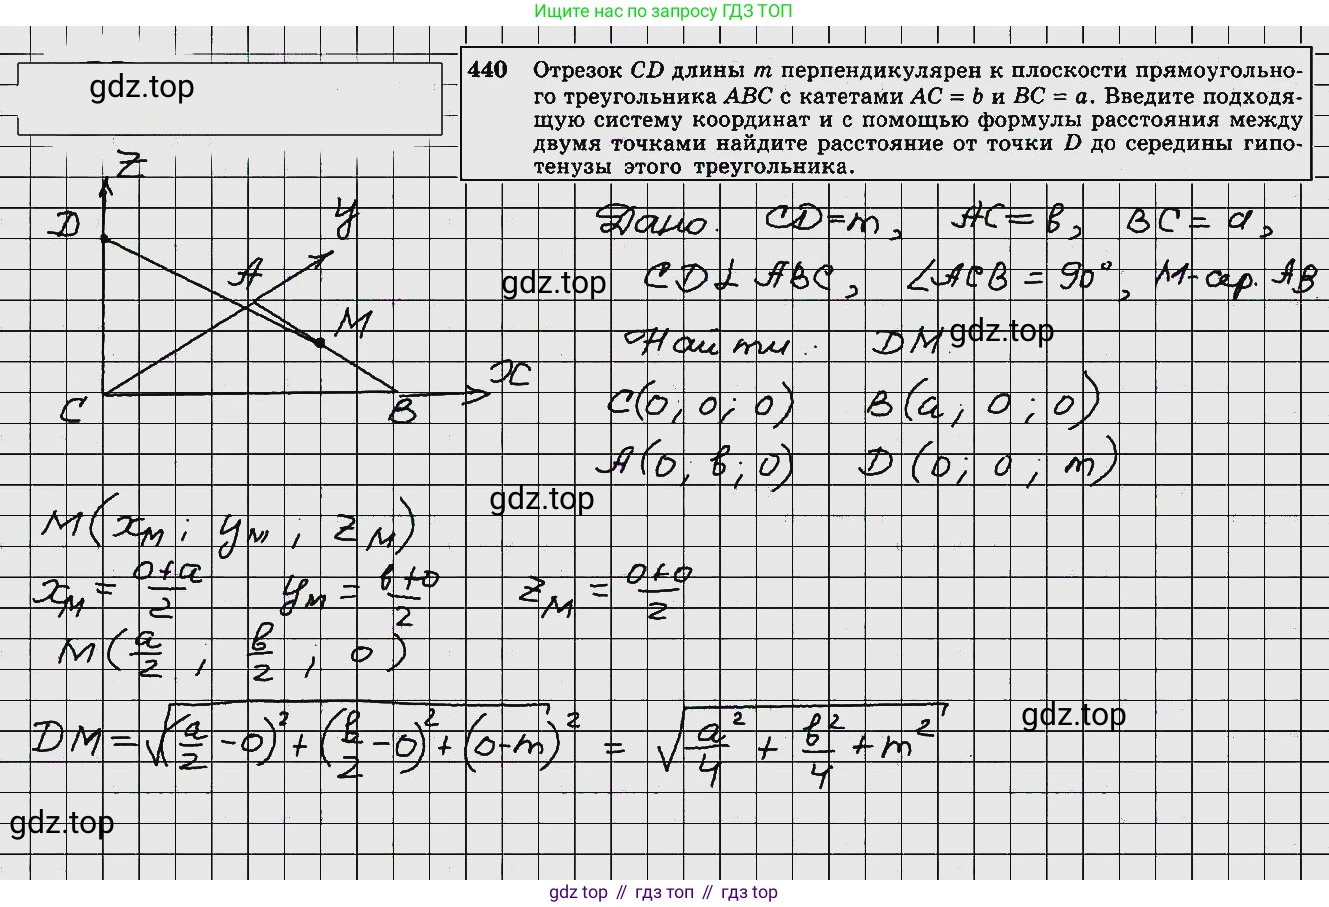 Ищите нас по запросу ГДЗ ТОП
gdz.top
440 Отрезок CD длины m перпендикулярен к плоскости прямоугольно-
го треугольника ABC с катетами AC = b и BC = a. Введите подходя-
щую систему координат и с помощью формулы расстояния между
двумя точками найдите расстояние от точки D до середины гипо-
тенузы этого треугольника.
Z
D
y
A
M
C
B
X
Дано: CD=m, AC=b, BC=a,
gdz.top
CD⊥ABC, ∠ACB=90°, M-сер. AB
Найти: DM
gdz.top
C(0; 0; 0) B(a; 0; 0)
A(0; b; 0) D(0; 0; m)
gdz.top
M(x_M; y_M; z_M)
x_M = (0+a)/2 y_M = (b+0)/2 z_M = (0+0)/2
M(a/2; b/2; 0)
DM = √((a/2-0)²+(b/2-0)²+(0-m)²) = √(a²/4 + b²/4 + m²)
gdz.top
gdz.top
gdz top // гдз топ // gdz top